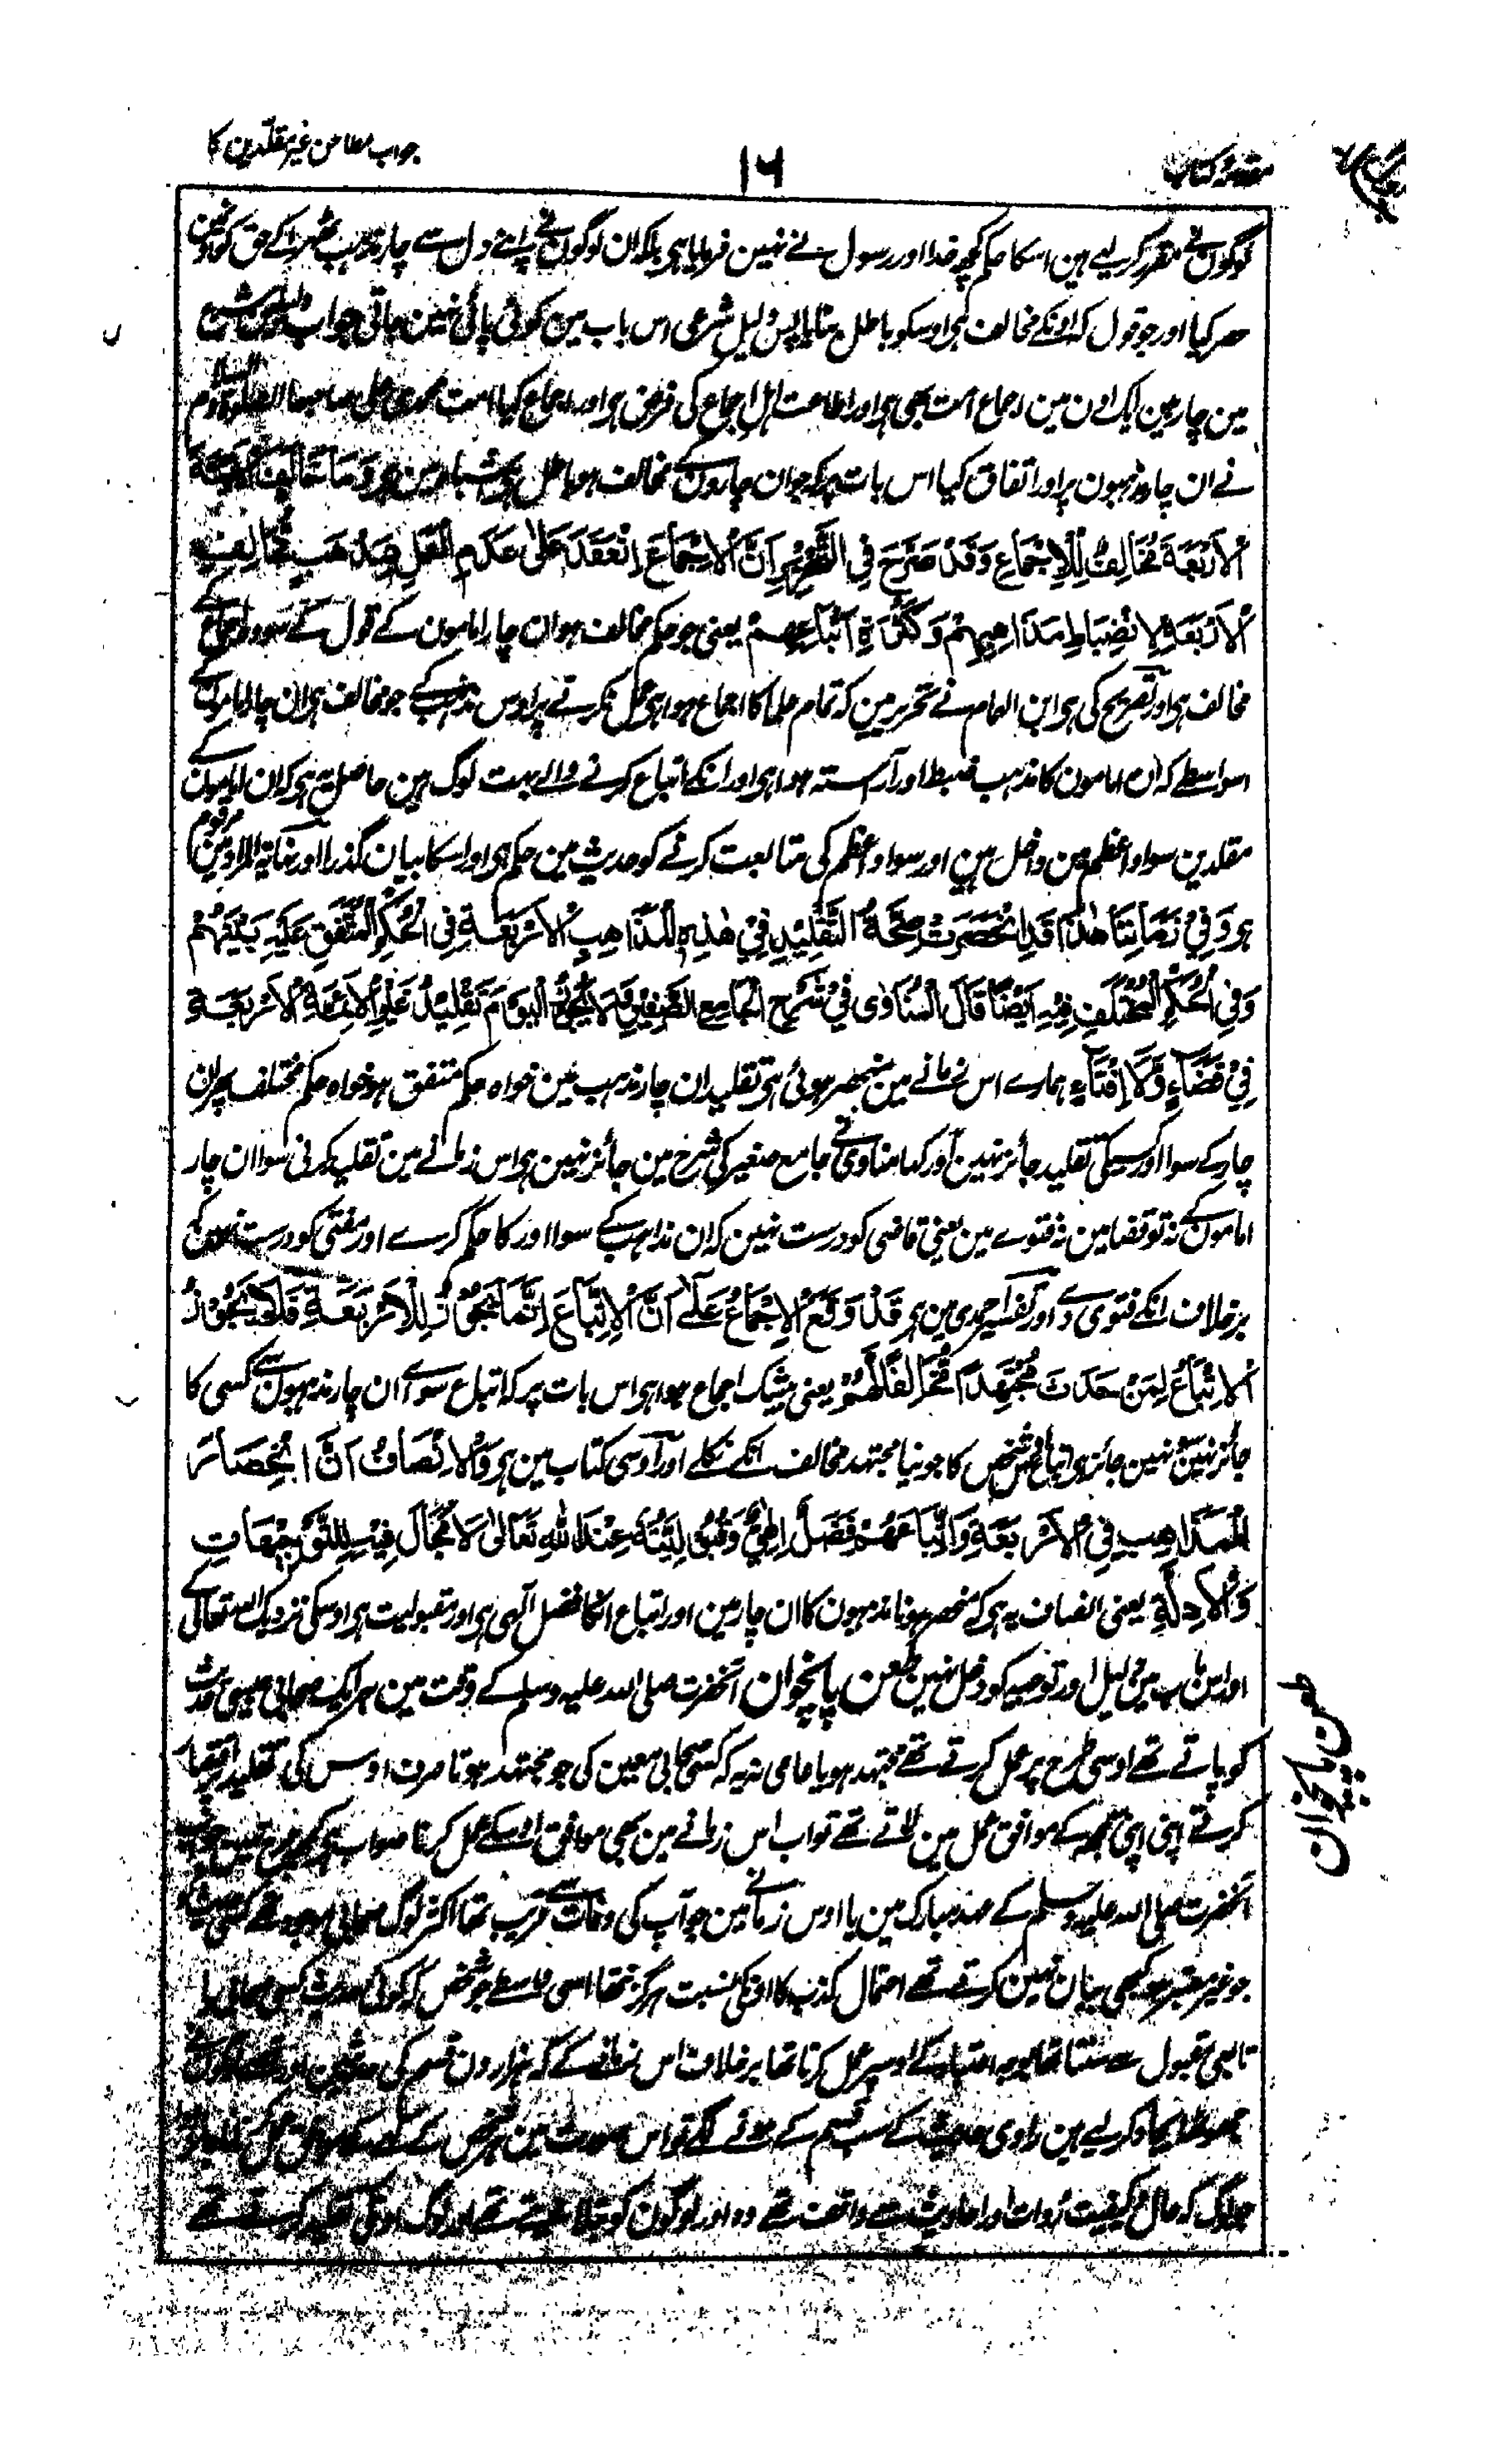 مقدمۂ کتاب
۱۶
جواب مطاعن غیر مقلدین کا
لوگوں نے مقرر کر لیے ہین اسکا حکم کچھ خدا اور رسول نے نہین فرمایا ہی بلکہ ان لوگون نے اپنے دل سے چار مذہب ٹھہرا کے حق کو اونھین
حصر کیا اور جو قول کہ اونکے مخالف ہی اوسکو باطل بتایا پس دلیل شرعی اس باب مین کوئی پائی نہین جاتی جواب
مین چار ہین ایک اون مین اجماع امت بھی ہی اور اطاعت اہل اجماع کی فرض ہی اور اجماع کیا امت محمدی علی صاحبہا الصلوۃ والسلام
نے ان چار مذہبون پر اور اتفاق کیا اس بات پر کہ جو ان چارون کے مخالف ہو باطل ہی اشباہ مین ہی وَمَا خَالَفَ الْاَئِمَّةَ
الْاَرْبَعَةَ مُخَالِفٌ لِلْاِجْمَاعِ وَقَدْ صَرَّحَ فِي التَّحْرِيْرِ اَنَّ الْاِجْمَاعَ اِنْعَقَدَ عَلٰى عَدَمِ الْعَمَلِ بِمَذْهَبٍ مُخَالِفٍ
الْاَرْبَعَةِ لِانْضِبَاطِ مَذَاهِبِهِمْ وَكَثْرَةِ اَتْبَاعِهِمْ یعنی جو حکم مخالف ہو ان چار امامون کے قول کے سو وہ اجماع کے
مخالف ہی اور تصریح کی ہی ابن الہمام نے تحریر مین کہ تمام علما کا اجماع ہوا ہی عمل نکرنے پر اوس مذہب کے جو مخالف ہو ان چار اماموں کے
اسواسطے کہ ان امامون کا مذہب ضبط اور آراستہ ہوا ہی اور انکے اتباع کرنے والے بہت لوگ ہین حاصل یہ ہی کہ ان امامون کے
مقلدین سواد اعظم مین داخل ہین اور سواد اعظم کی متابعت کرنے کو حدیث مین حکم ہی اور اسکا بیان گذرا اور نہایۃ المراد مین مرقوم
ہی وَفِيْ زَمَانِنَا هٰذَا قَدِ انْحَصَرَتْ صِحَّةُ التَّقْلِيْدِ فِيْ هٰذِهِ الْمَذَاهِبِ الْاَرْبَعَةِ فِي الْحُكْمِ الْمُتَّفَقِ عَلَيْهِ بَيْنَهُمْ
وَفِي الْحُكْمِ الْمُخْتَلَفِ فِيْهِ اَيْضًا قَالَ الْمُنَاوِى فِيْ شَرْحِ الْجَامِعِ الصَّغِيْرِ وَلَا يَجُوْزُ الْيَوْمَ تَقْلِيْدُ غَيْرِ الْاَئِمَّةِ الْاَرْبَعَةِ
فِيْ قَضَاءٍ وَّلَا اِفْتَاءٍ ہمارے اس زمانے مین منحصر ہوئی ہی تقلید ان چار مذہب مین خواہ حکم متفق ہو خواہ حکم مختلف پھر ان
چار کے سوا اور کسیکی تقلید جائز نہین اور کہا مناوی نے جامع صغیر کی شرح مین جائز نہین ہی اس زمانے مین تقلید کرنی سوا ان چار
امامون کے نہ تو قضا مین نہ فتوے مین یعنی قاضی کو درست نہین کہ ان مذاہب کے سوا اور کا حکم کرے اور مفتی کو درست نہین کہ
برخلاف انکے فتوی دے اور تفسیر احمدی مین ہی قَدْ وَقَعَ الْاِجْمَاعُ عَلٰى اَنَّ الْاِتِّبَاعَ اِنَّمَا يَجُوْزُ لِلْاَرْبَعَةِ فَلَا يَجُوْزُ
الْاِتِّبَاعُ لِمَنْ حَدَثَ مُجْتَهِدًا مُخَالِفًا لَّهُمْ یعنی بیشک اجماع ہوا ہی اس بات پر کہ اتباع سواے ان چار مذہبون سے کسی کا
جائز نہین نہین جائز ہی اتباع اس شخص کا جو نیا مجتہد مخالف انکے نکلے اور اوسی کتاب مین ہی وَالْاِنْصَافُ اَنَّ انْحِصَارَ
الْمَذَاهِبِ فِي الْاَرْبَعَةِ وَاتِّبَاعَهُمْ فَضْلٌ اِلٰهِيٌّ وَقَبُوْلِيَّةٌ عِنْدَ اللهِ تَعَالٰى لَا مَجَالَ فِيْهِ لِلتَّوْجِيْهَاتِ
وَالْاَدِلَّةِ یعنی انصاف یہ ہی کہ منحصر ہونا مذہبون کا ان چار مین اور اتباع انکا فضل آلہی ہی اور مقبولیت ہی اوسکی نزدیک اللہ تعالی کے
اور اس باب مین دلیل اور توجیہ کو دخل نہین طعن پانچوان آنحضرت صلی اللہ علیہ وسلم کے وقت مین ہر ایک صحابی جیسی حدیث
کو پاتے تھے اوسی طرح پر عمل کرتے تھے مجتہد ہو یا عامی نہ یہ کہ کسی صحابی معین کی جو مجتہد ہوتا صرف اوس کی تقلید
کرتے اپنی اپنی سمجھ کے موافق عمل مین لاتے تھے تو اب اس زمانے مین بھی موافق اوسکے عمل کرنا صواب ہی کچھ حرج نہین جواب
آنحضرت صلی اللہ علیہ وسلم کے عہد مبارک مین یا اوس زمانے مین جو آپ کی وفات سے قریب تھا اکثر لوگ صحابی موجود تھے
جو غیر معتبر ہو کبھی بیان نہین کرتے تھے احتمال کذب کا اونکی نسبت ہرگز نتھا اسی واسطے جو شخص کہ کوئی حدیث کسی صحابی یا
تابعی مقبول سے سنتا تھا بوجہ اعتبار کے اوسپر عمل کرتا تھا برخلاف اس زمانے کے کہ ہزارون قسم کی حدیثین
جھوٹھ ایجاد کر لیے ہین راوی حدیث کے سب قسم کے ہونے لگے تو اس صورت مین ہر شخص کے
جو لوگ کہ حال کیفیت روات اور احادیث سے واقف تھے وہ اور لوگون کو بتلا دیتے تھے اور لوگ اونکی تقلید کرتے تھے
طعن پانچوان